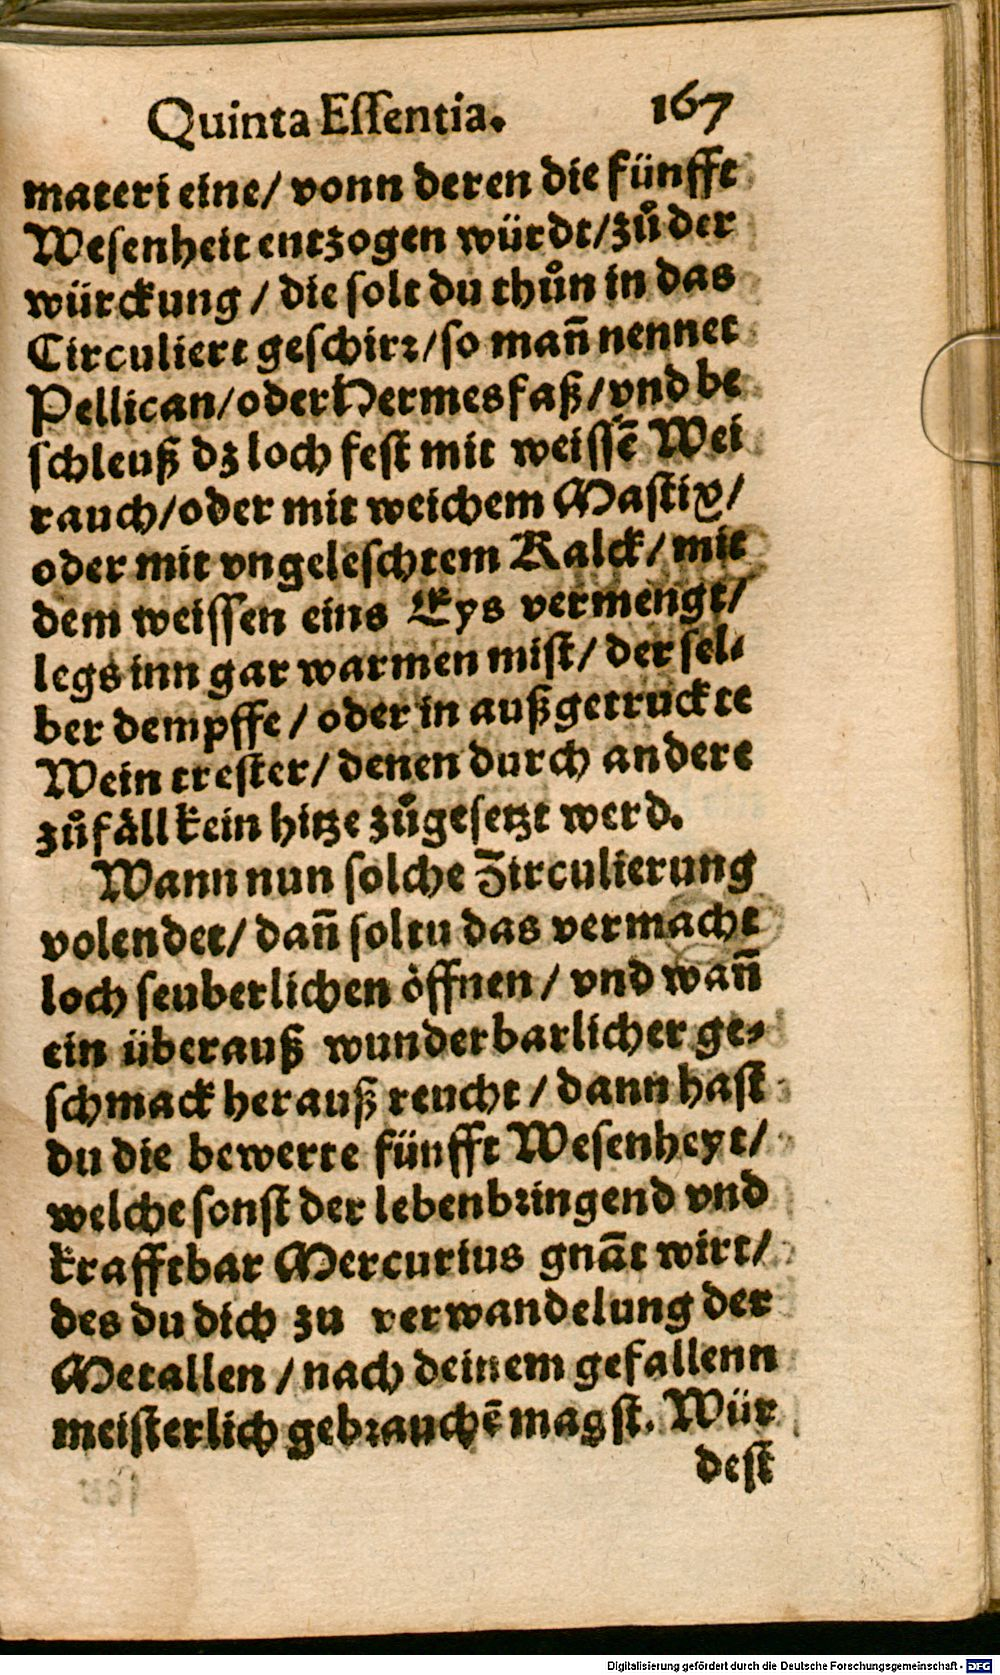 Quinta Eſſentia. 167
materi eine/ vonn deren die fünfft
Weſenheit entzogen würdt/zů der
würckung / die ſolt du thůn in das
Circuliert geſchirꝛ/ſo mañ nennet
Pellican/oder Hermes faß/vnd be
ſchleuß dz loch feſt mit weiſſē Wei
rauch/oder mit weichem Maſtix/
oder mit vngeleſchtem Kalck/ mit
dem weiſſen eins Eys vermengt/
legs inn gar warmen miſt/ der ſel⸗
ber dempffe/ oder in außgetruckte
Wein treſter/ denen durch andere
zůfäll kein hitze zůgeſetzt werd.
Wann nun ſolche Zirculierung
volendet/ dañ ſoltu das vermacht
loch ſeuberlichen öffnen/ vnd wañ
ein überauß wunderbarlicher ge⸗
ſchmack herauß reucht/ dann haſt
du die bewerte fünfft Weſenheyt/
welche ſonſt der lebenbꝛingend vnd
krafftbar Mercurius gnāt wirt/
des du dich zu verwandelung der
Metallen/ nach deinem gefallenn
meiſterlich gebꝛauchē magſt. Wür
deſt
Digitalisierung gefördert durch die Deutsche Forschungsgemeinschaft - DFG